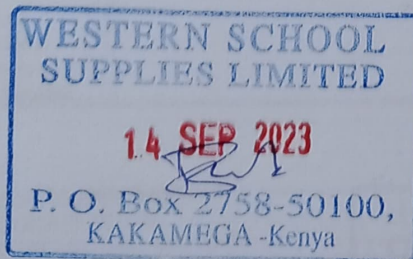 WESTERN SCHOOL
SUPPLIES LIMITED
14 SEP 2023
P. O. Box 2758-50100,
KAKAMEGA -Kenya